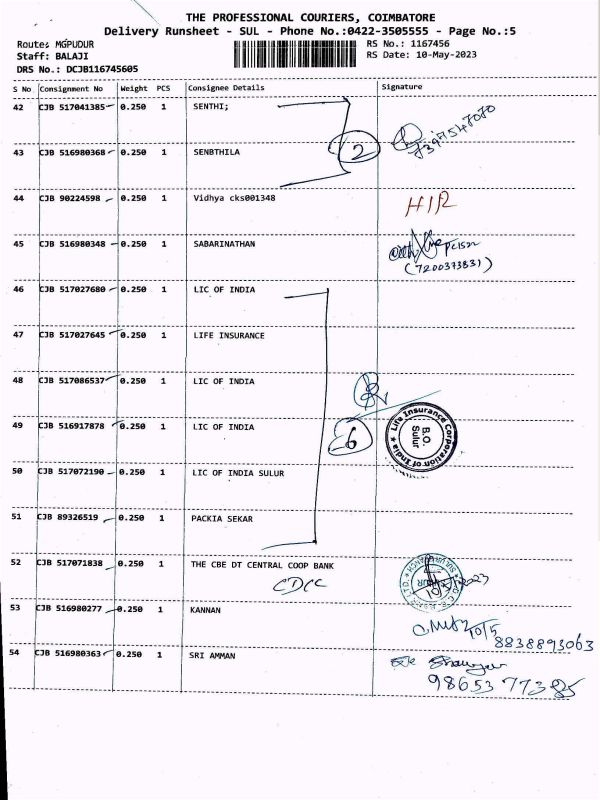 THE PROFESSIONAL COURIERS, COIMBATORE
Delivery Runsheet - SUL - Phone No.:0422-3505555 - Page No.:5
Route: MGPUDUR RS No.: 1167456
Staff: BALAJI RS Date: 10-May-2023
DRS No.: DCJB116745605
S No Consignment No Weight PCS Consignee Details Signature
42 CJB 517041385 0.250 1 SENTHI;
43 CJB 516980368 0.250 1 SENBTHILA
2
44 CJB 90224598 0.250 1 Vidhya cks001348
45 CJB 516980348 0.250 1 SABARINATHAN
(7200373831)
46 CJB 517027680 0.250 1 LIC OF INDIA
47 CJB 517027645 0.250 1 LIFE INSURANCE
48 CJB 517086537 0.250 1 LIC OF INDIA
49 CJB 516917878 0.250 1 LIC OF INDIA
6
Life Insurance Corporation of India
B.O.
Sulur
50 CJB 517072190 0.250 1 LIC OF INDIA SULUR
51 CJB 89326519 0.250 1 PACKIA SEKAR
52 CJB 517071838 0.250 1 THE CBE DT CENTRAL COOP BANK
53 CJB 516980277 0.250 1 KANNAN
10/5
8838893063
54 CJB 516980363 0.250 1 SRI AMMAN